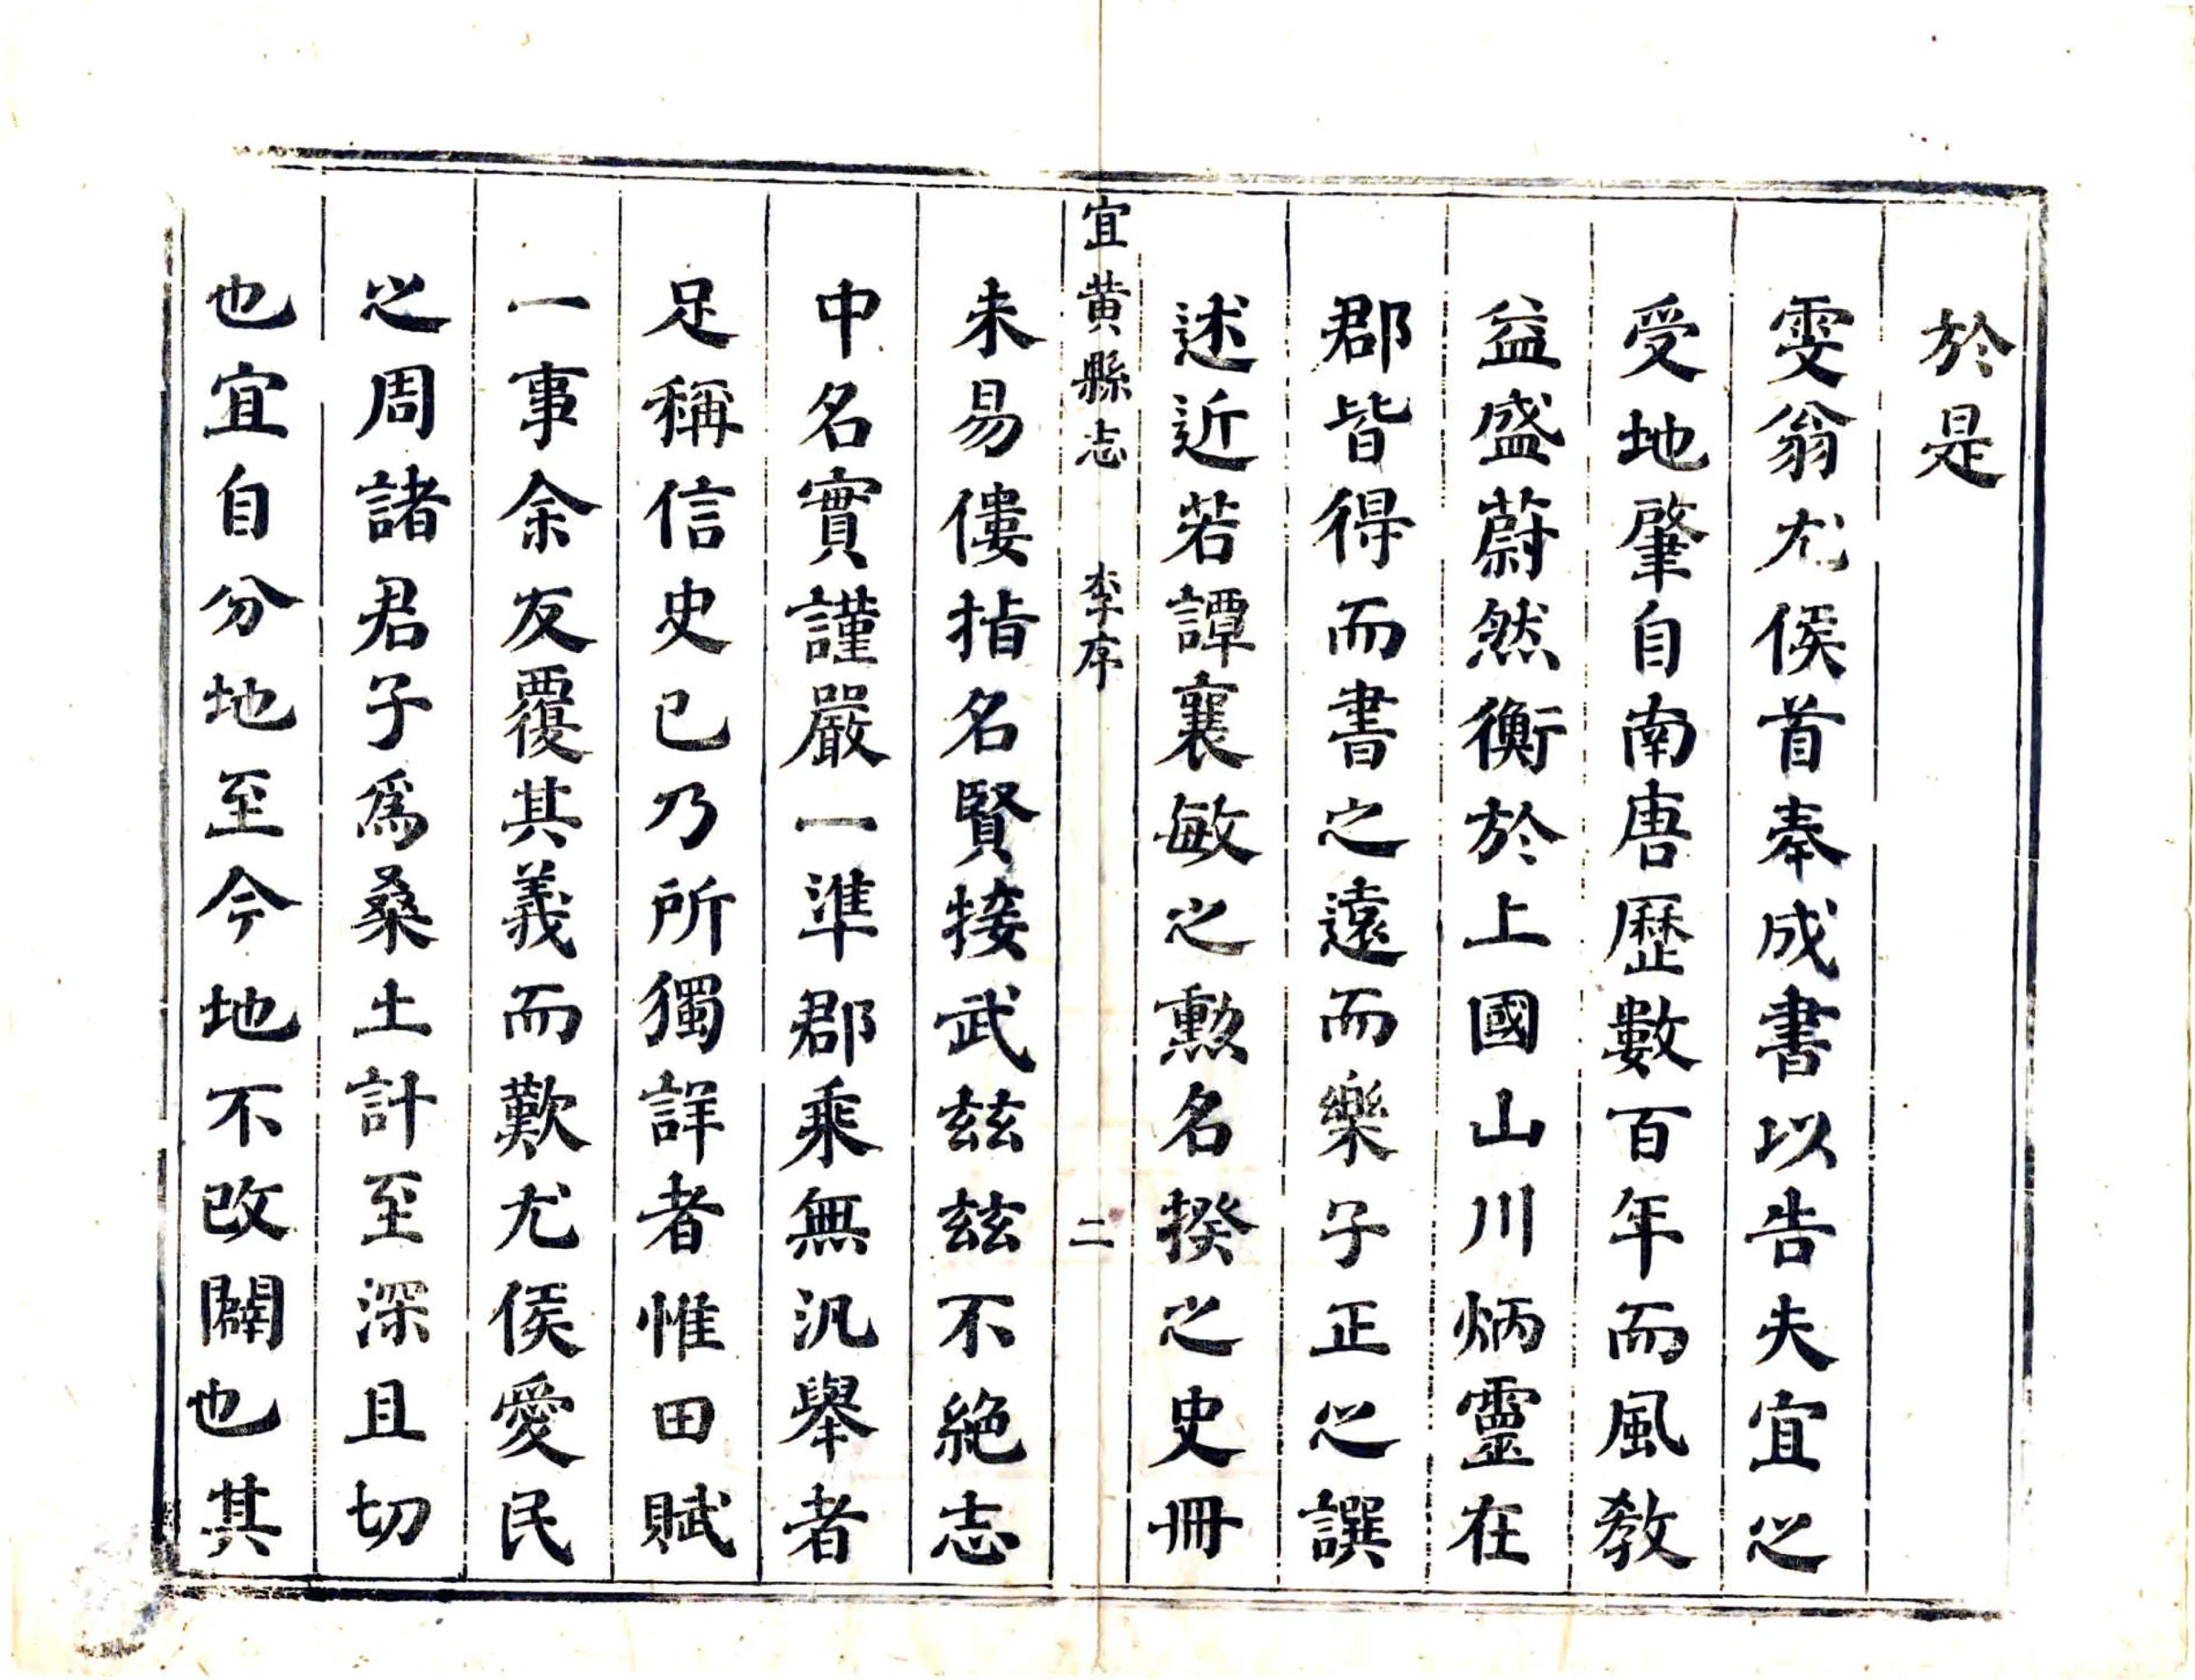 於是
雯翁尤侯首奉成書以告夫宜之
受地肇自南唐歷數百年而風敎
益盛蔚然衡於上國山川炳靈在
郡皆得而書之遠而樂子正之譔
述近若譚襄敏之勲名揆之史冊
宜黄縣志 李序 二
未易僂指名賢接武玆玆不絶志
中名實謹嚴一準郡乘無汎舉者
足稱信史已乃所獨詳者惟田賦
一事余友覆其義而歎尤侯愛民
之周諸君子爲桑土計至深且切
也宜自分地至今地不改闢也其